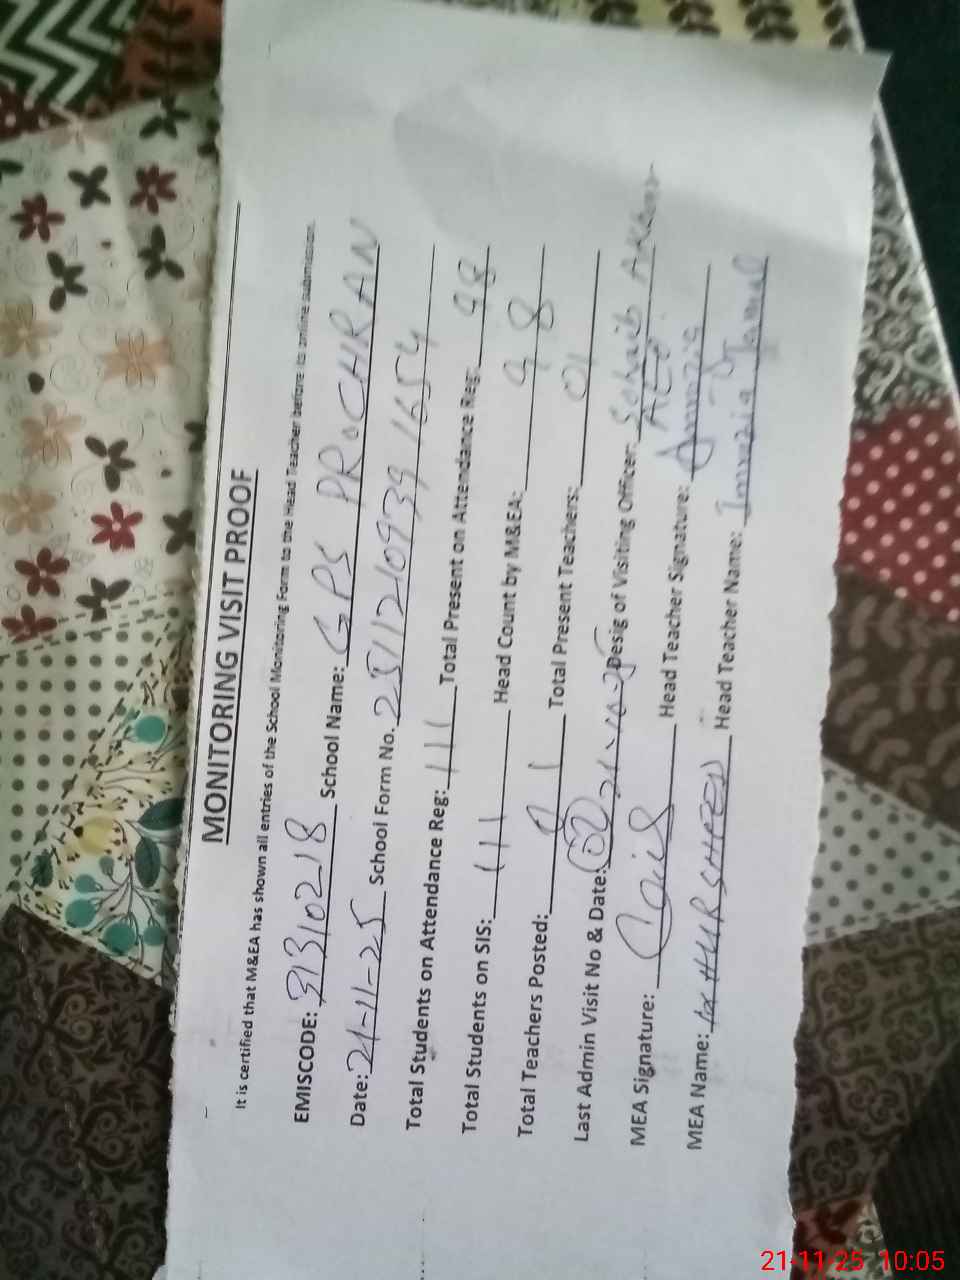 MONITORING VISIT PROOF
It is certified that M&EA has shown all entries of the School Monitoring Form to the Head Teacher before to online submission.
EMISCODE: 31310218 School Name: GPS PROCHRAN
Date: 21-11-25 School Form No. 251121093941654
Total Students on Attendance Reg: 111 Total Present on Attendance Reg: 98
Total Students on SIS: 111 Head Count by M&EA: 98
Total Teachers Posted: 01 Total Present Teachers: 01
Last Admin Visit No & Date: 02 21-10-25 Desig of Visiting Officer: Sohaib AEO
MEA Signature: Head Teacher Signature:
MEA Name: KHURSHEED Head Teacher Name: Jamal
21-11-25 10:05